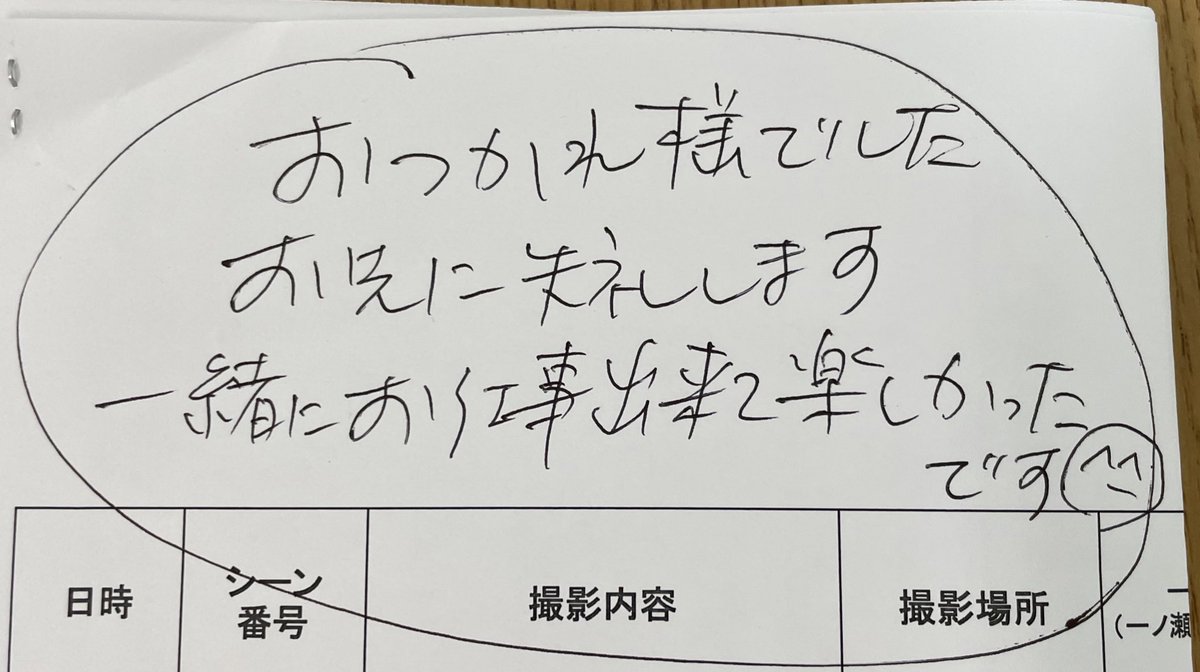 おつかれ様でした
お先に失礼します
一緒にお仕事出来て楽しかった
です
日時
シーン
番号
撮影内容
撮影場所
(一ノ瀬